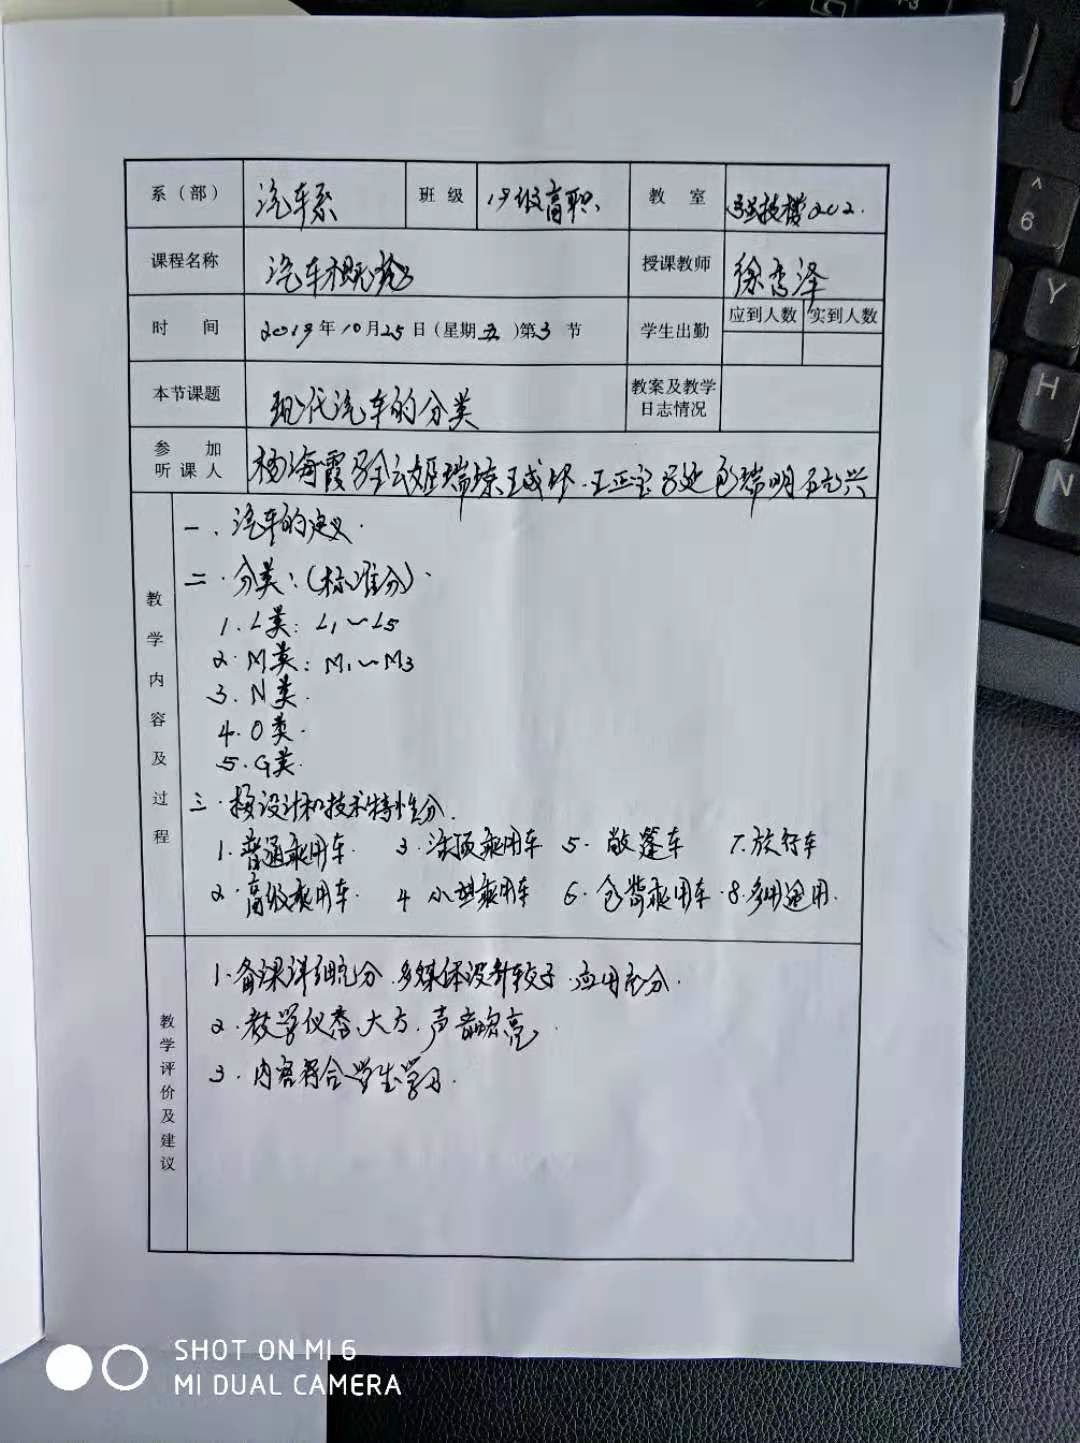 系（部） 汽车系 班级 19级高职 教室 202.
课程名称 汽车概论 授课教师 徐秀泽
时间 2019年10月25日（星期五）第3节 学生出勤 应到人数 实到人数
本节课题 现代汽车的分类 教案及教学日志情况
参加听课人 杨海霞 王正宝 瑞明
教学内容及过程
一、汽车的定义.
二.分类:(标准分).
1.L类: L1~L5
2.M类: M1~M3
3.N类.
4.O类.
5.G类.
三.按设计和技术特性分.
1.普通乘用车. 3.活顶乘用车 5.敞篷车 7.旅行车
2.高级乘用车. 4 小型乘用车 6.仓背乘用车.8.多用途用.
教学评价及建议
1.备课详细充分.多媒体设计较好.应用充分.
2.教学仪态大方.声音响亮.
3.内容符合学生学习.
SHOT ON MI 6
MI DUAL CAMERA
^
6
Y
H
N